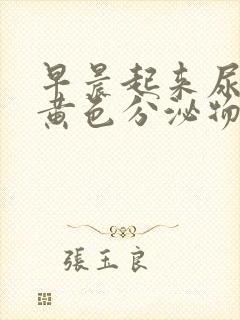 早晨起来尿
黄色分泌物
張玉良